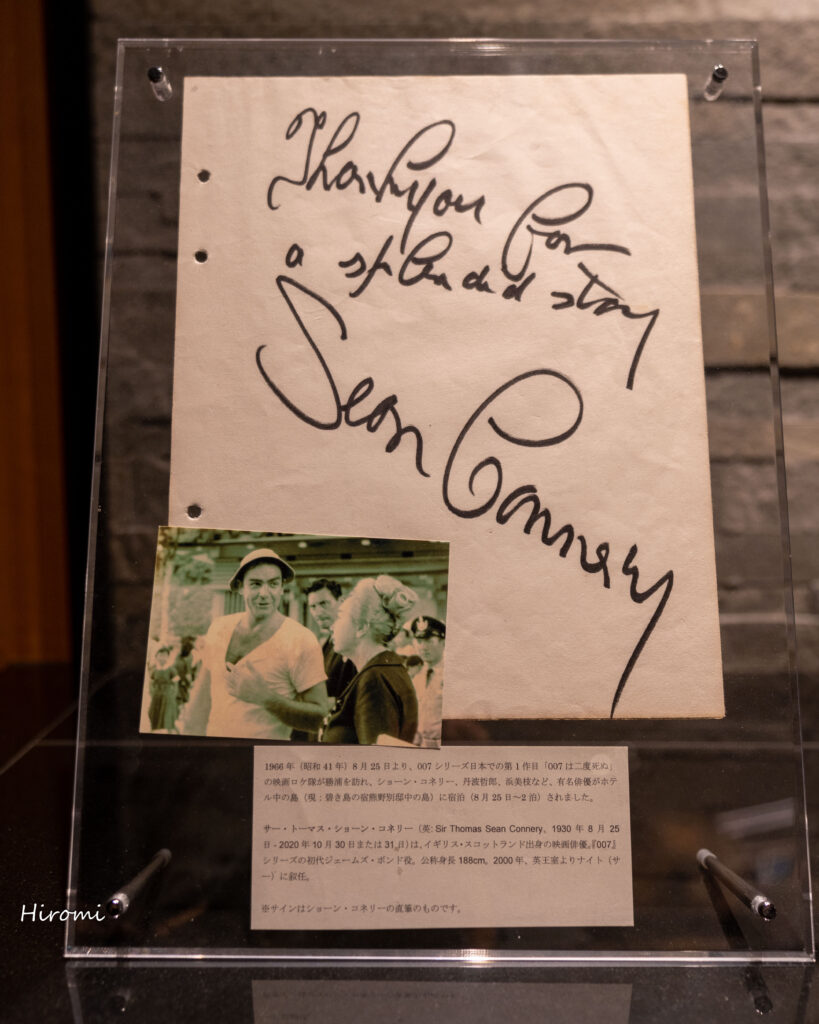 Thank you for
a splendid stay
Sean Connery
1966年（昭和41年）8月25日より、007シリーズ日本での第1作目「007は二度死ぬ」
の映画ロケ隊が勝浦を訪れ、ショーン・コネリー、丹波哲郎、浜美枝など、有名俳優がホテ
ル中の島（現：碧き島の宿熊野別邸中の島）に宿泊（8月25日～2泊）されました。
サー・トーマス・ショーン・コネリー（英: Sir Thomas Sean Connery、1930年8月25
日 - 2020年10月30日または31日）は、イギリス・スコットランド出身の映画俳優。『007』
シリーズの初代ジェームズ・ボンド役。公称身長188cm。2000年、英王室よりナイト（サ
ー）に叙任。
※サインはショーン・コネリーの直筆のものです。
Hiromi